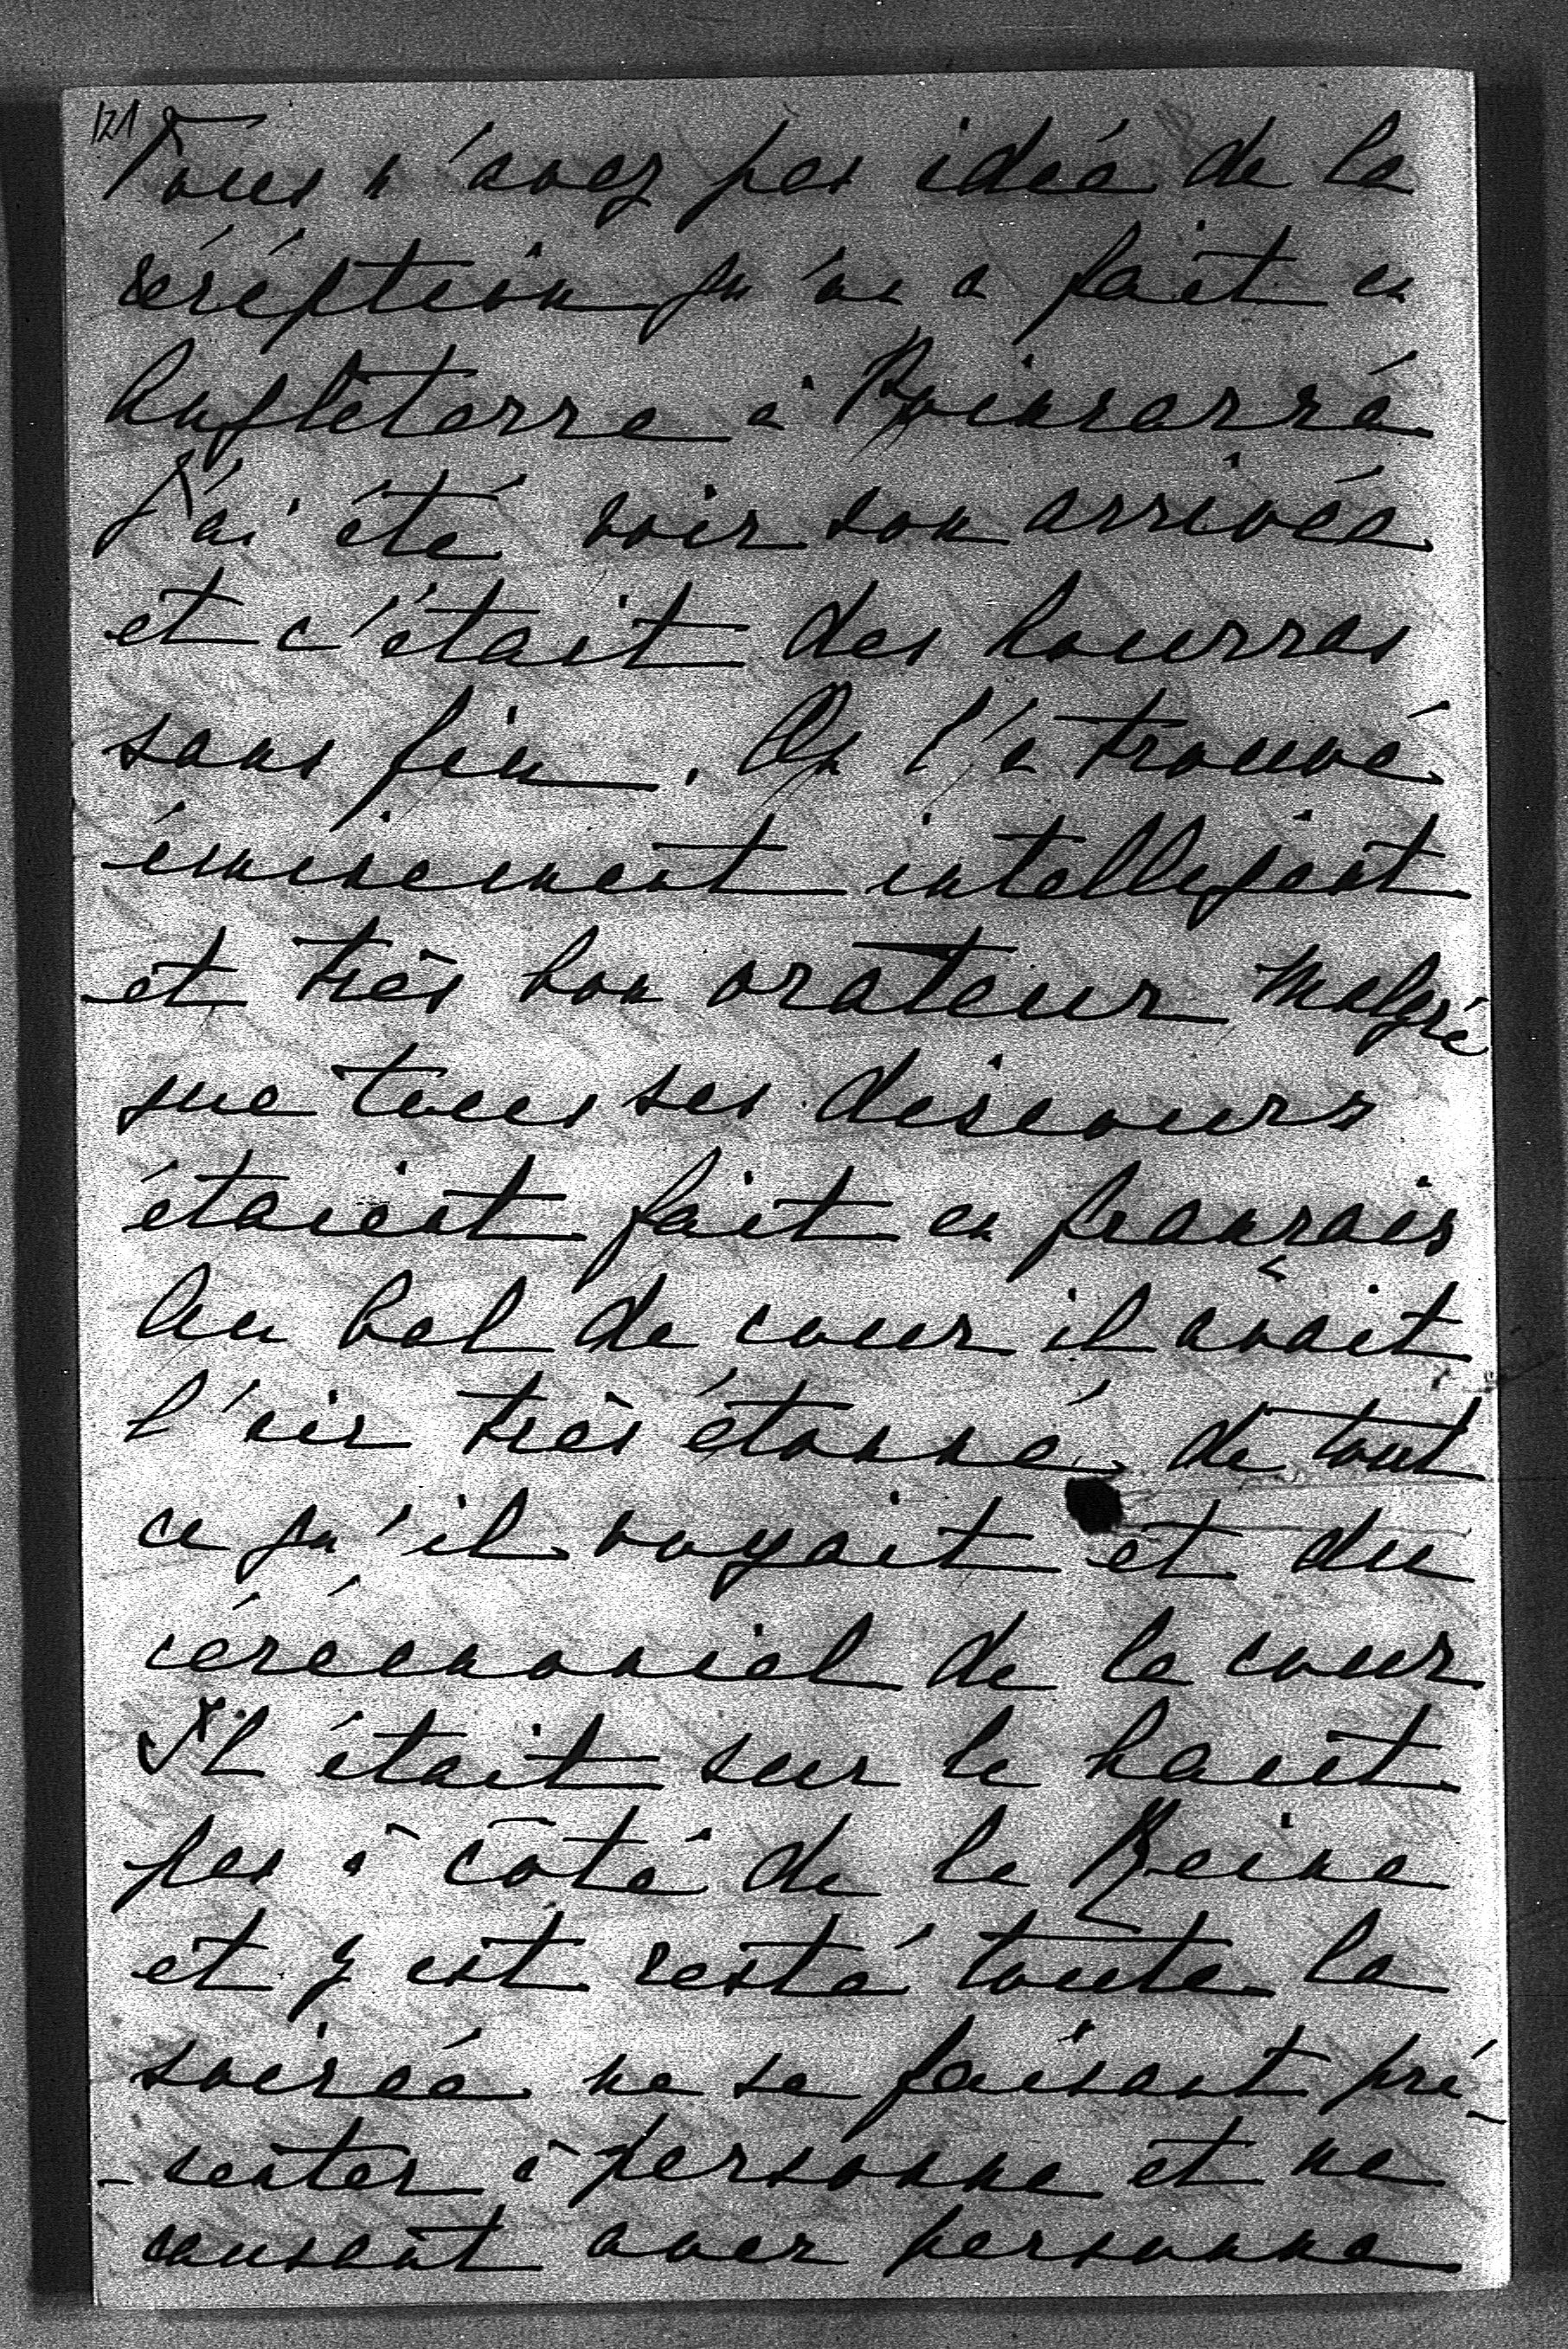 121
Vous n'avez pas idée de la
réréption qu'on a fait en
Angleterre à Poincarré
J'ai été voir son arrivée
et c'était des hourras
sans fin. On l'a trouvé
éminement intelligent
et très bon orateur malgré
que tous ses discours
étaient fait en français
Au bal de cour il avait
l'air très étonné de tout
ce qu'il voyait et du
cérémonial de la cour
Il était sur le haut
pas à côté de la Reine
et y est resté toute la
soirée ne se faisant pré-
-senter à personne et ne
causant avec personne